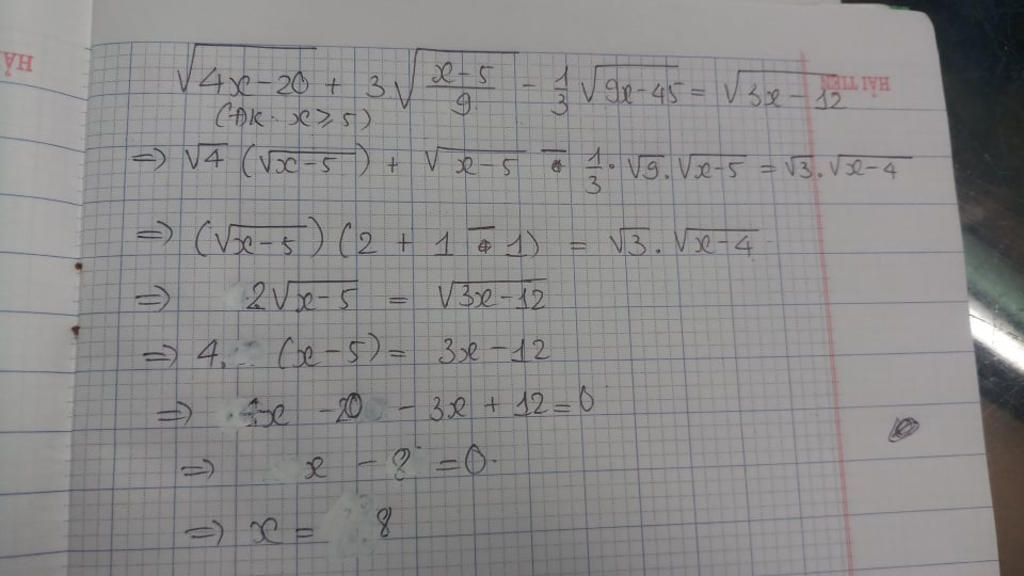 √(4x-20) + 3√((x-5)/9) - 1/3 √(9x-45) = √(3x-12)
(ĐK: x ≥ 5)
=> √4 (√(x-5)) + √(x-5) - 1/3 . √9 . √(x-5) = √3 . √(x-4)
=> (√(x-5)) (2 + 1 - 1) = √3 . √(x-4)
=> 2√(x-5) = √(3x-12)
=> 4. (x-5) = 3x-12
=> 4x - 20 - 3x + 12 = 0
=> x - 8 = 0.
=> x = 8
HẢI TIẾN
HẢI